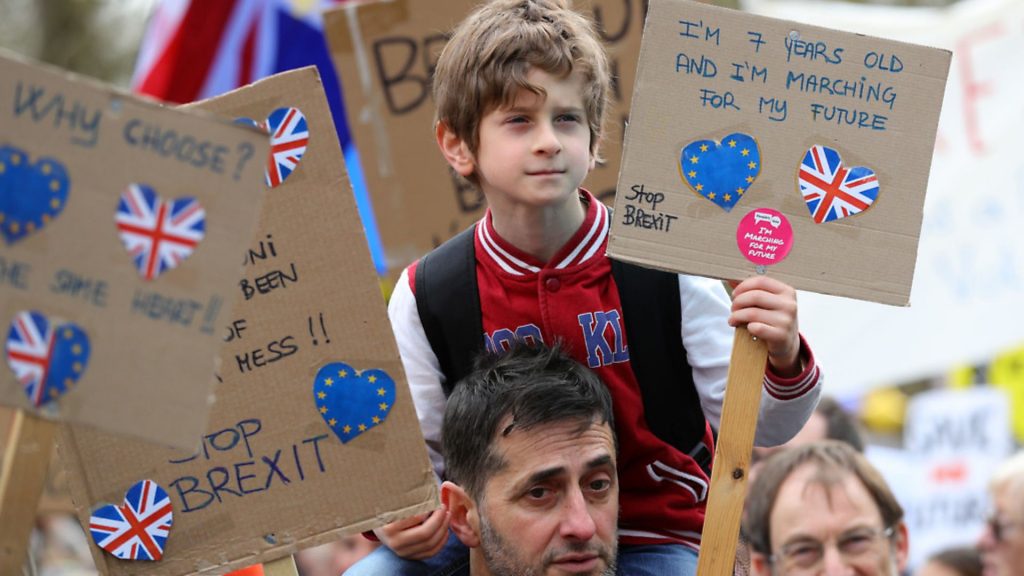 WHY CHOOSE?
THE SAME HEART!!
NI
BEEN
OF
MESS !!
STOP
BREXIT
I'M 7 YEARS OLD
AND I'M MARCHING
FOR MY FUTURE
STOP
BREXIT
I'M
MARCHING
FOR MY
FUTURE
KL